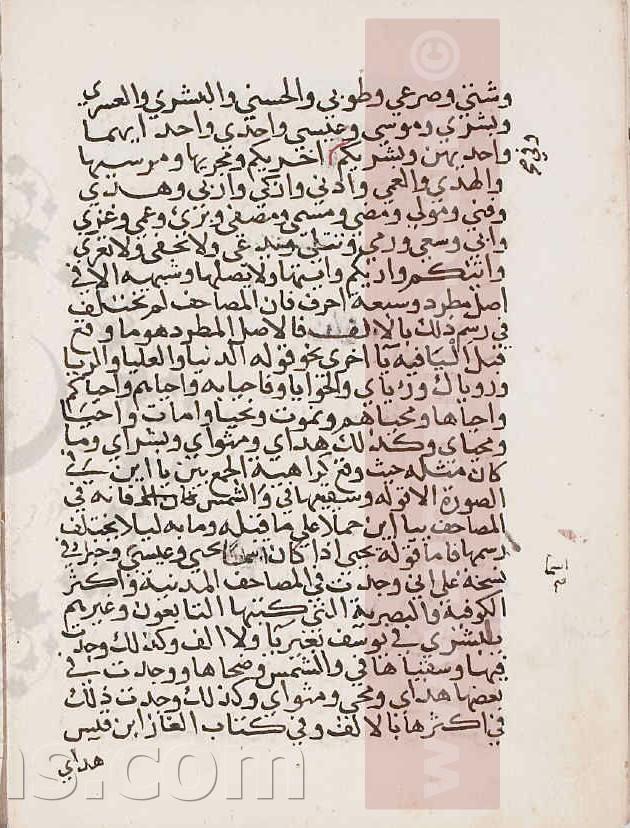 وشتي وصرعي وطوبي والحسني واليسري والعسري
وبشري وموسي وعيسي واحدي واحدايهما
واحديهن وبشريكم اخريكم ومجريها ومرسيها
والهدي والعمي وادني وازكي واربي وهدي
وفتي ومولي ومصلي ومسمي ومصفي وعمي وغزي
واتي وسعي ورمي وتتلي وتدعي ولا يخفي ولا تعري
واتيكم واريكم واتيها ولا يصليها وشبهه الا في
اصل مطرد وسبعة احرف فان المصاحف لم يختلف
في رسم ذلك بالالف فالاصل المطرد هو ما وقع
قبل الياء فيه يا اخري نحو قوله الدنيا والعليا والريا
وروياك وروياي والحوايا وفاحيا به واحياهم واحياكم
واحياها ومحياهم ونموت ونحيا وامات واحيا
ومحياي وكذلك هداي ومثواي وبشراي وما
كان مثله حيث وقع كراهية الجمع بين ياين في
الصورة الا قوله وسقيها في والشمس فانه في
المصاحف بياين حملا على ما قبله وما بعده ليلا يختلف
رسمها فاما قوله يحيى اذا كان اسما نحو يحيى وعيسى
نسخه على اني وجدت في المصاحف المدنية واكثر
الكوفية والبصرية التي كتبها التابعون وغيرهم
يبشري في يوسف بغير يا ولا الف وكذلك وجدت
فيها وسقيها في والشمس وضحاها ووجدت في
بعضها هداي ومحياي ومثواي وكذلك وجدت ذلك
في اكثرها بالالف وفي كتاب الغاز ابن قيس
هداي
اسما
ns.com
©
w